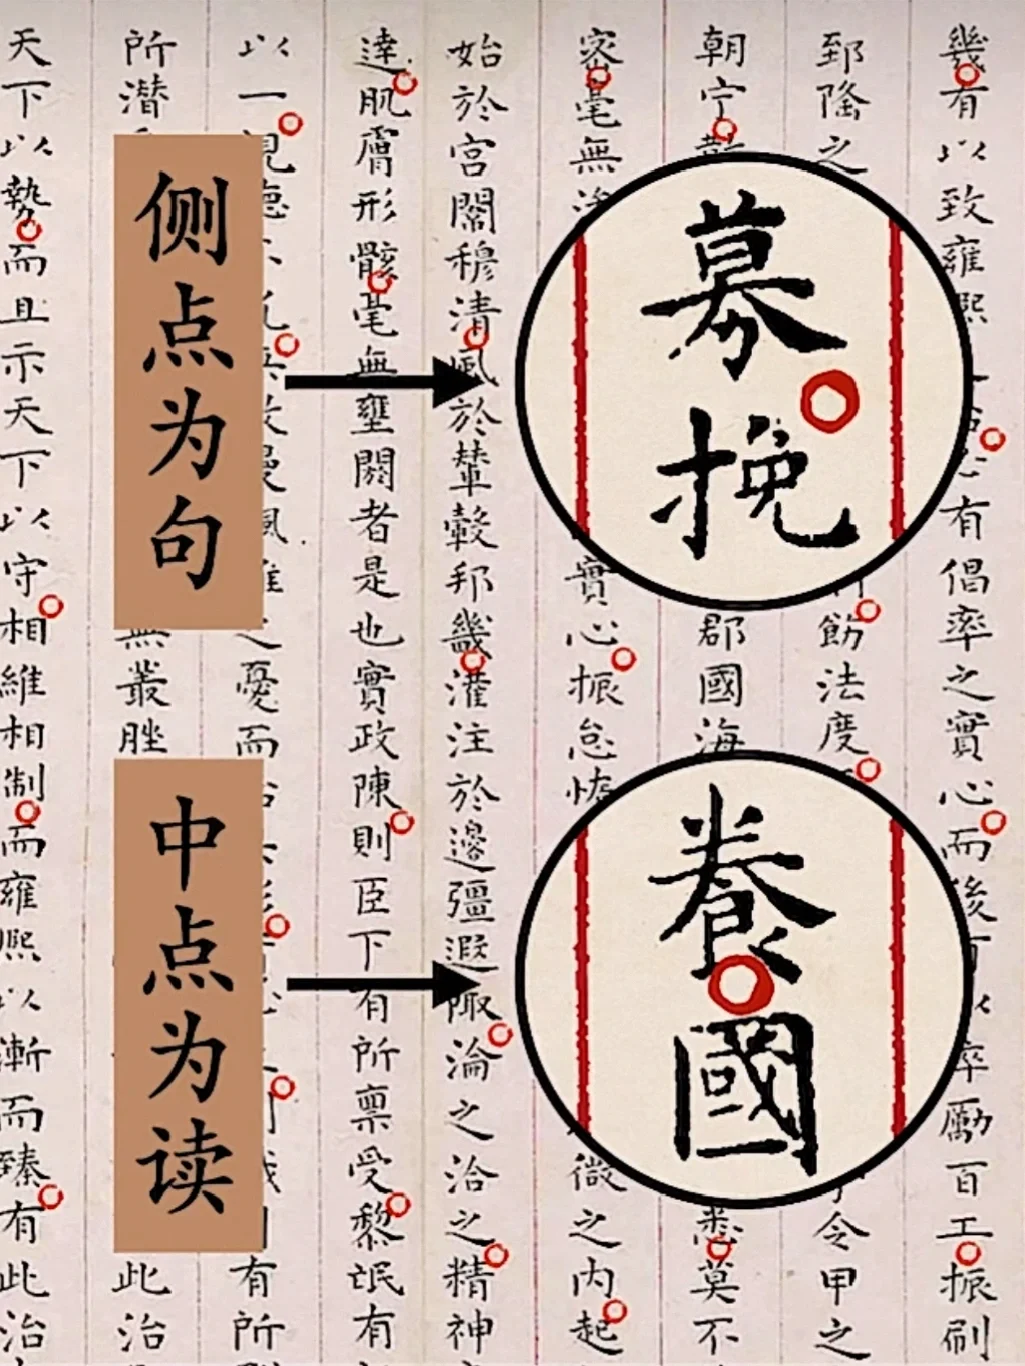 侧点为句
中点为读
募挽
養國
幾有以致雍熙
有倡率之實心而後
率勵百工振刷
郅隆之
飭法度
令甲之
朝宁
郡國海
悉莫不
密毫無
實心振怠惰
微之內起
始於宮闈穆清風於輦轂邦畿灌注於邊疆遐陬淪之洽之精神
達肌膚形骸毫無壅閼者是也實政陳則臣下有所禀受黎氓有
以一
之憂而
有所
所潛
無叢脞
此治
天下以勢而且示天下以守相維相制而雍熙以漸而臻有此治